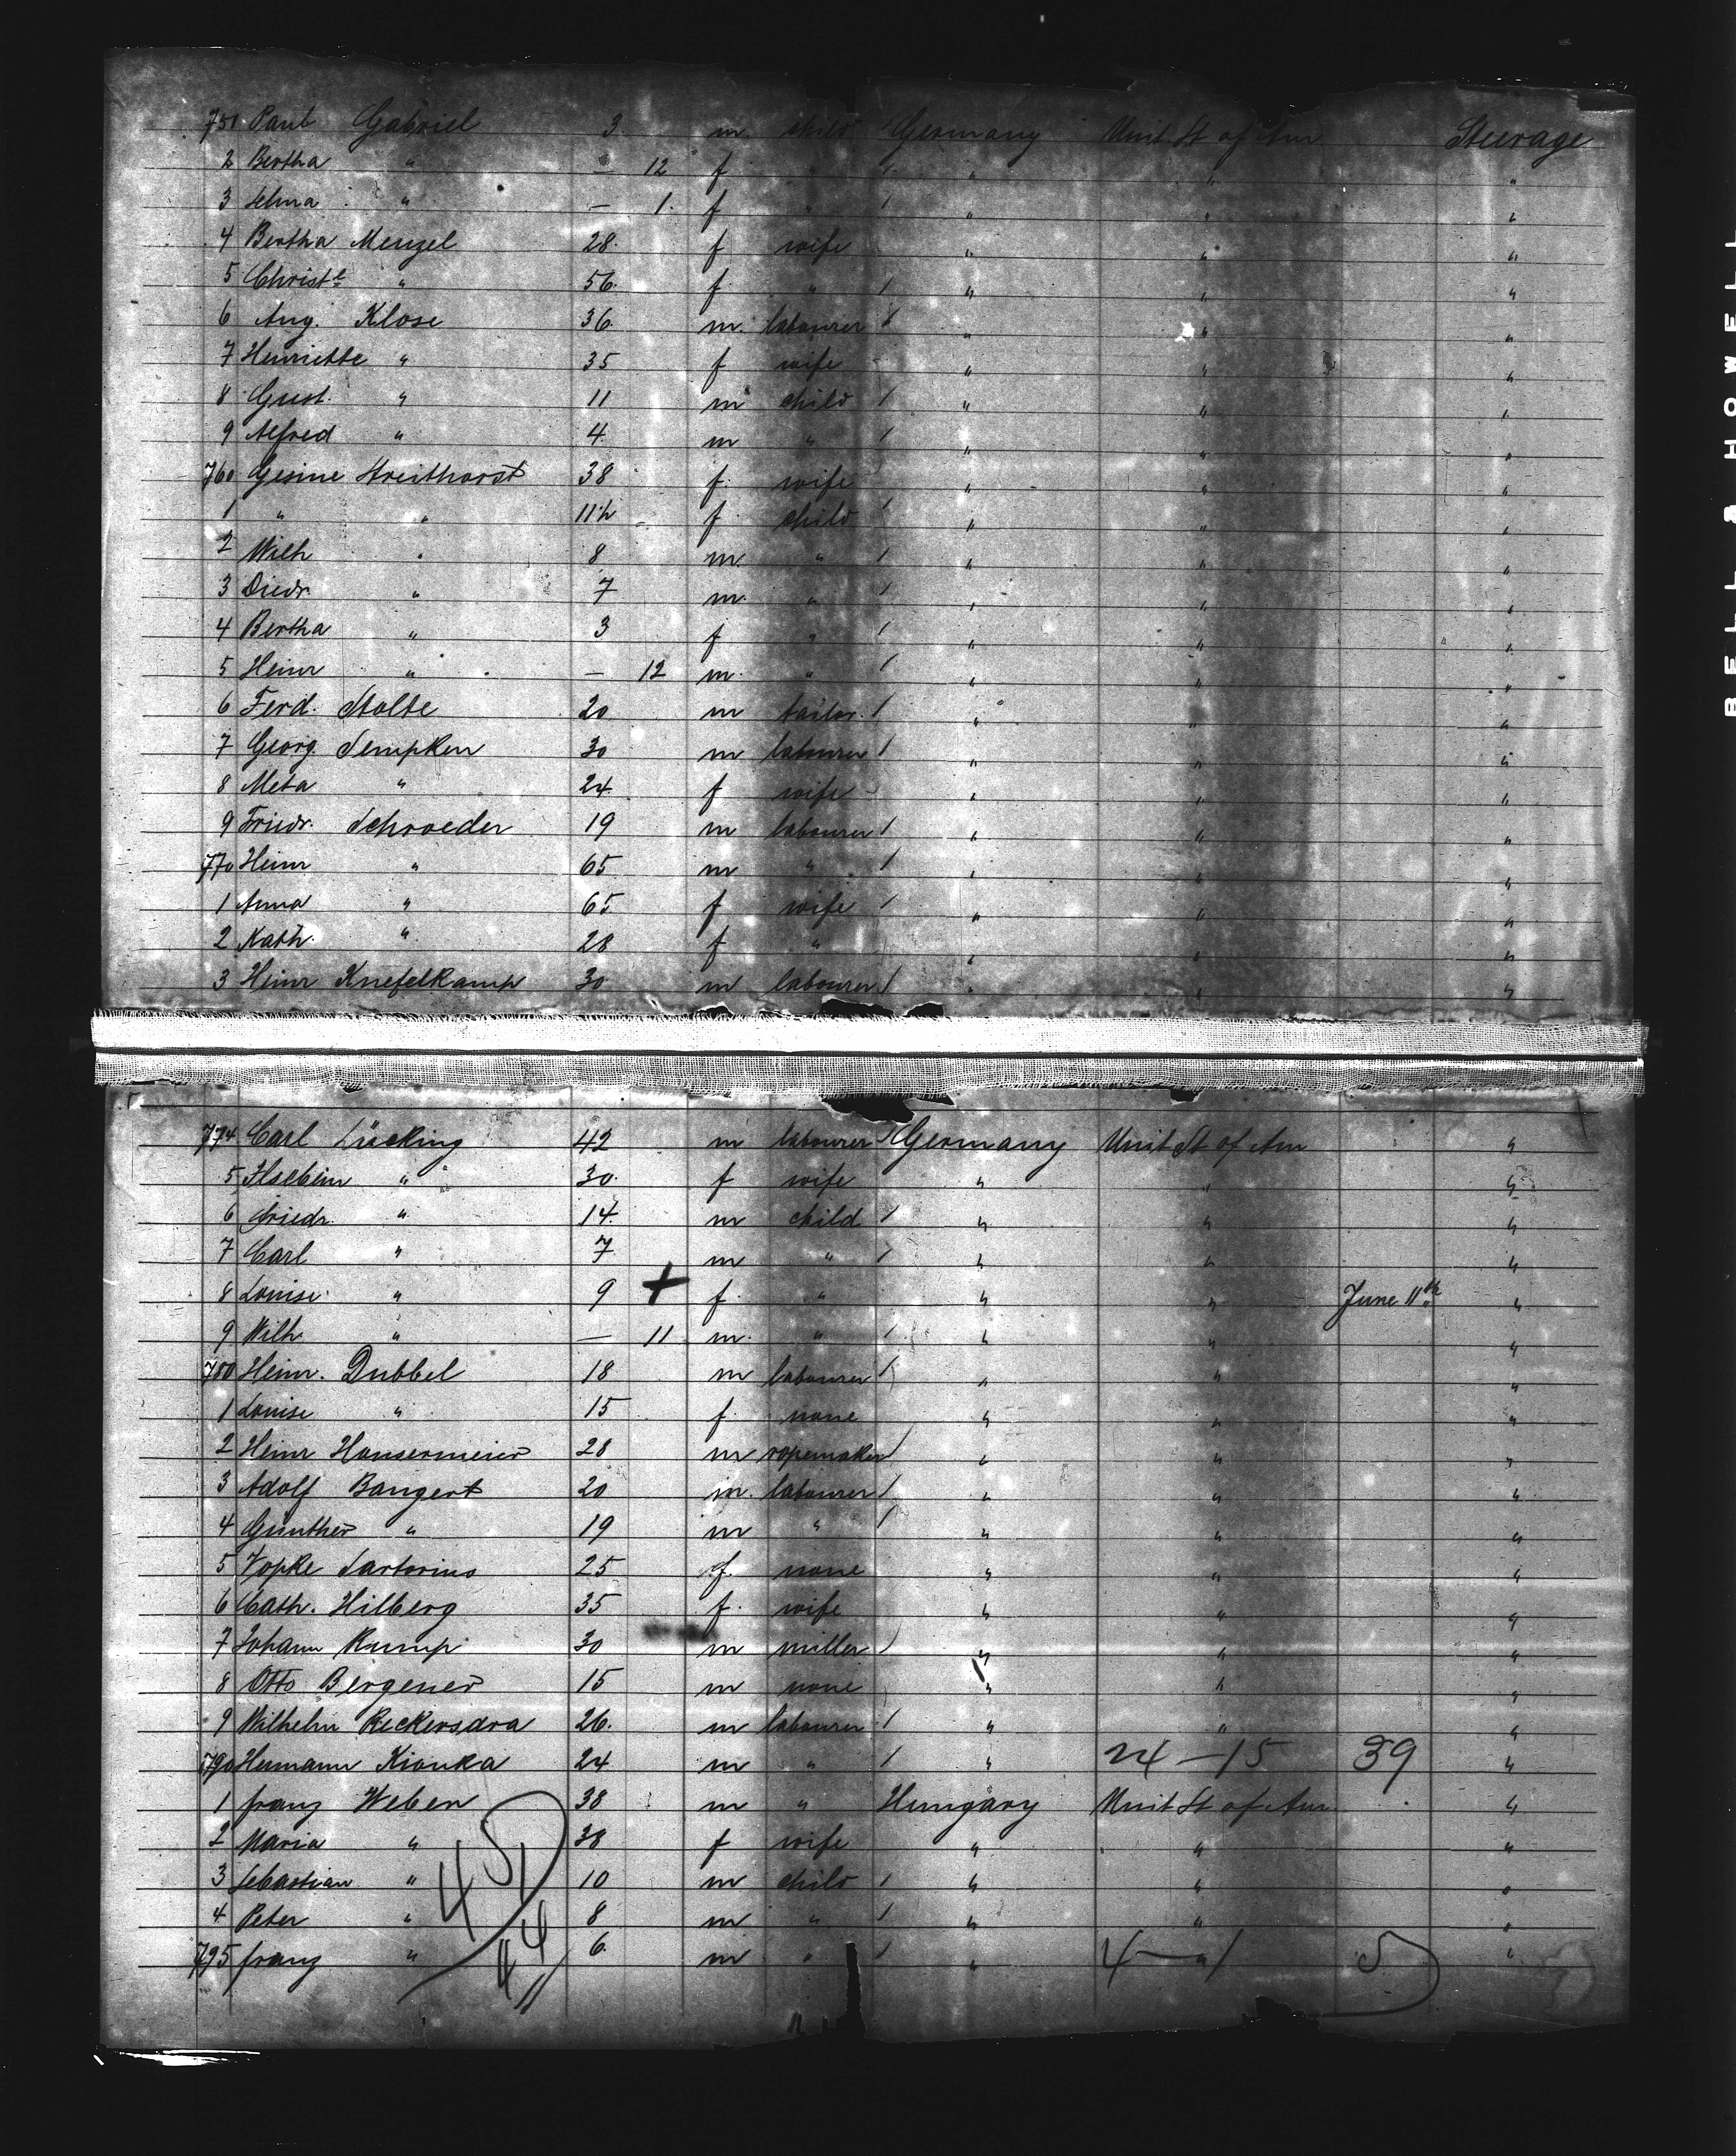 751 Paul Gabriel 3 m child Germany Unit St of Am Steerage
2 Bertha " — 12 f " " " "
3 Selma " — 1 f " " " "
4 Bertha Menzel 28 f wife " " "
5 Christe " 56 f " " " "
6 Aug. Klose 36 m labourer " " "
7 Henriette " 35 f wife " " "
8 Gust. " 11 m child " " "
9 Alfred " 4 m " " " "
760 Gesine Streithorst 38 f wife " " "
1 " " 11 1/2 f child " " "
2 Wilh " 8 m " " " "
3 Diedr. " 7 m " " " "
4 Bertha " 3 f " " " "
5 Heinr " — 12 m " " " "
6 Ferd. Stolte 20 m tailor " " "
7 Georg Sempken 30 m labourer " " "
8 Meta " 24 f wife " " "
9 Friedr. Schroeder 19 m labourer " " "
770 Heinr " 65 m " " " "
1 Anna " 65 f wife " " "
2 Kath. " 28 f " " " "
3 Heinr Knefelkamp 30 m labourer " " "
774 Carl Lücking 42 m labourer Germany Unit St of Am "
5 Ilsebein " 30 f wife " " "
6 Friedr. " 14 m child " " "
7 Carl " 7 m " " " "
8 Louise " 9 + f " " " June 11th "
9 Wilh " — 11 m " " " "
780 Heinr. Dubbel 18 m labourer " " "
1 Louise " 15 f none " " "
2 Heinr Hansermeier 28 m ropemaker " " "
3 Adolf Bangert 20 m labourer " " "
4 Günther " 19 m " " " "
5 Sartorius 25 f none " " "
6 Cath. Hilberg 35 f wife " " "
7 Johann Rump 30 m miller " " "
8 Otto Bergener 15 m none " " "
9 Wilhelm 26 m labourer " " "
790 Hermann Kionka 24 m " " 24 — 15 39 "
1 Franz Weben 38 m " Hungary Unit St of Am "
2 Maria " 38 f wife " " "
3 Sebastian " 10 m child " " "
4 Peter " 8 m " " " "
795 Franz " 6 m " " 4 — 1 5 "
45
44
BELL & HOWELL